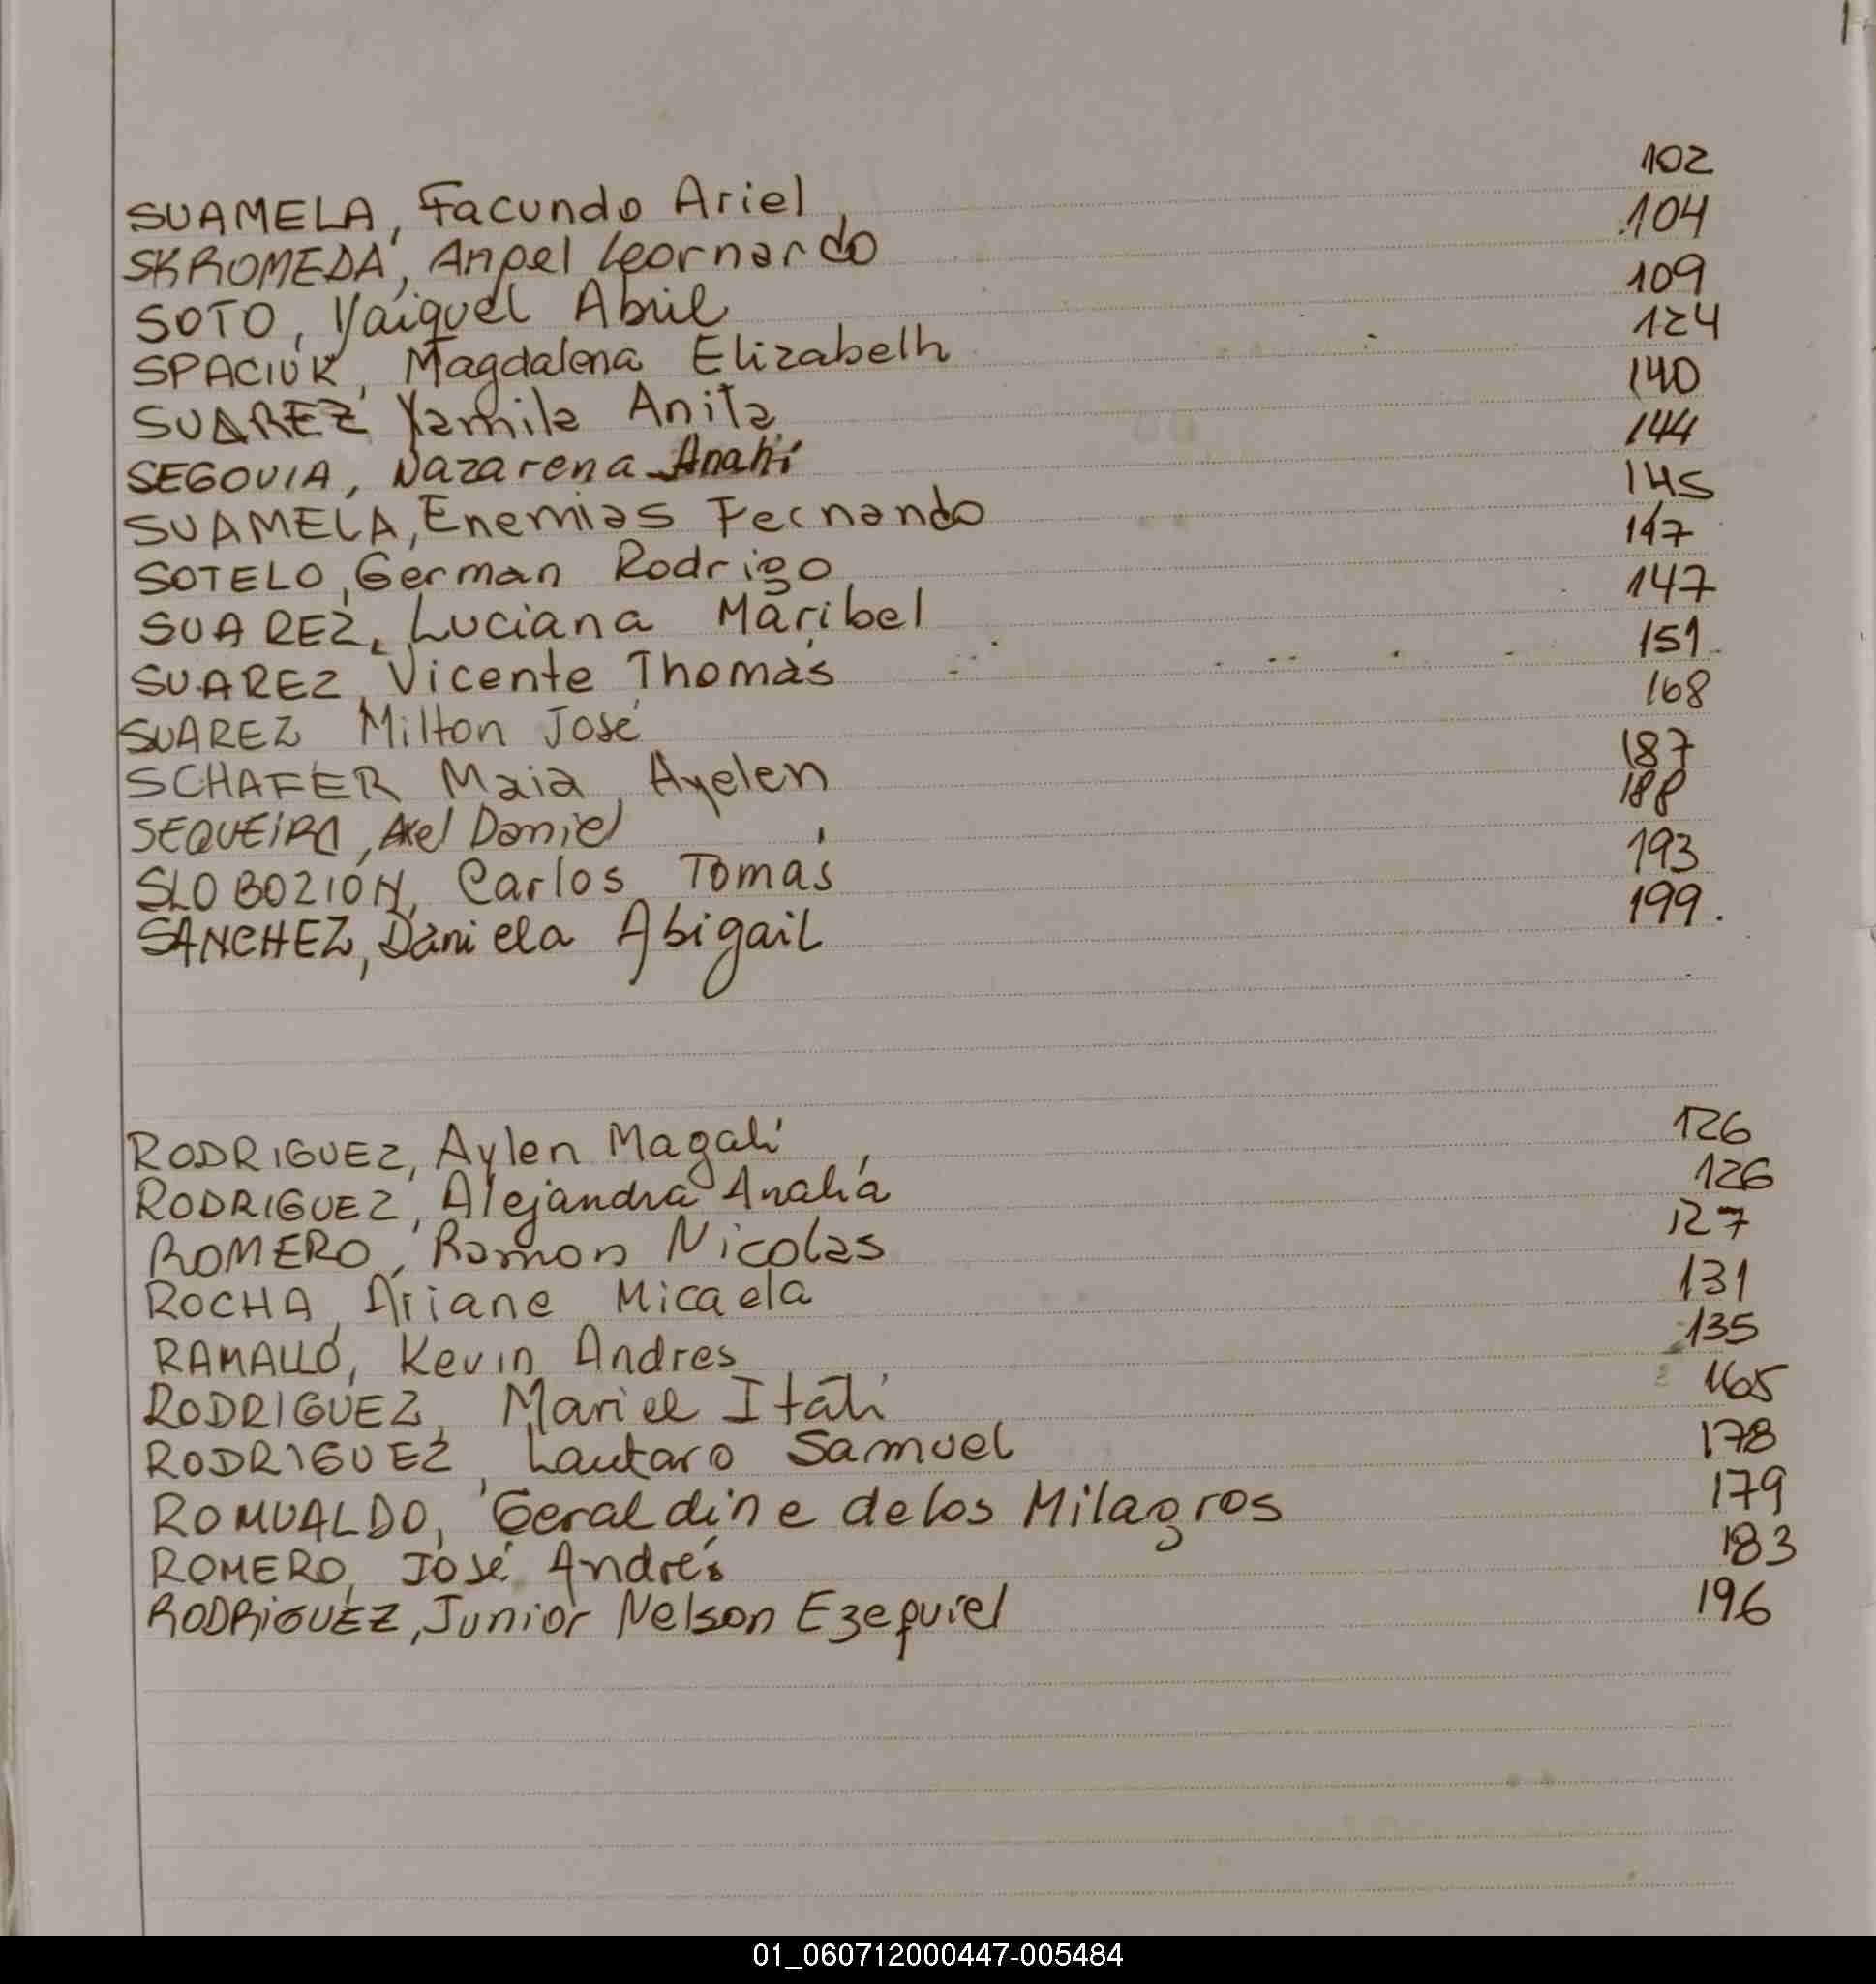 SUAMELA, Facundo Ariel 102
SKROMEDA, Angel Leornardo 104
SOTO, Yaiquel Abril 109
SPACIUK, Magdalena Elizabeth 124
SUAREZ Yamila Anita 140
SEGOVIA, Nazarena Anahí 144
SUAMELA, Enemias Fernando 145
SOTELO, German Rodrigo 147
SUAREZ, Luciana Maribel 147
SUAREZ, Vicente Thomas 151
SUAREZ Milton José 168
SCHAFER Maia Ayelen 187
SEQUEIRA, Axel Daniel 188
SLOBOZION, Carlos Tomás 193
SANCHEZ, Daniela Abigail 199.
RODRIGUEZ, Aylen Magalí 126
RODRIGUEZ, Alejandra Analía 126
ROMERO, Ramon Nicolas 127
ROCHA, Ariane Micaela 131
RAMALLO, Kevin Andres 135
RODRIGUEZ, Mariel Itatí 165
RODRIGUEZ, Lautaro Samuel 178
ROMUALDO, Geraldine de los Milagros 179
ROMERO, José Andrés 183
RODRIGUEZ, Junior Nelson Ezequiel 196
01_060712000447-005484